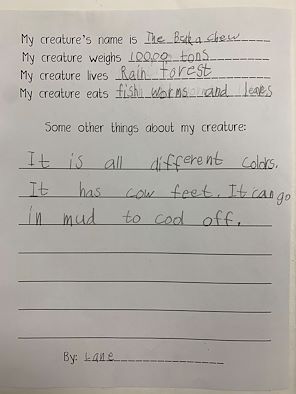 My creature's name is The Beak a chew
My creature weighs 10000 tons
My creature lives Rain forest
My creature eats fish worms and leaves
Some other things about my creature:
It is all different colors.
It has cow feet. It can go
in mud to cool off.
By: Lane